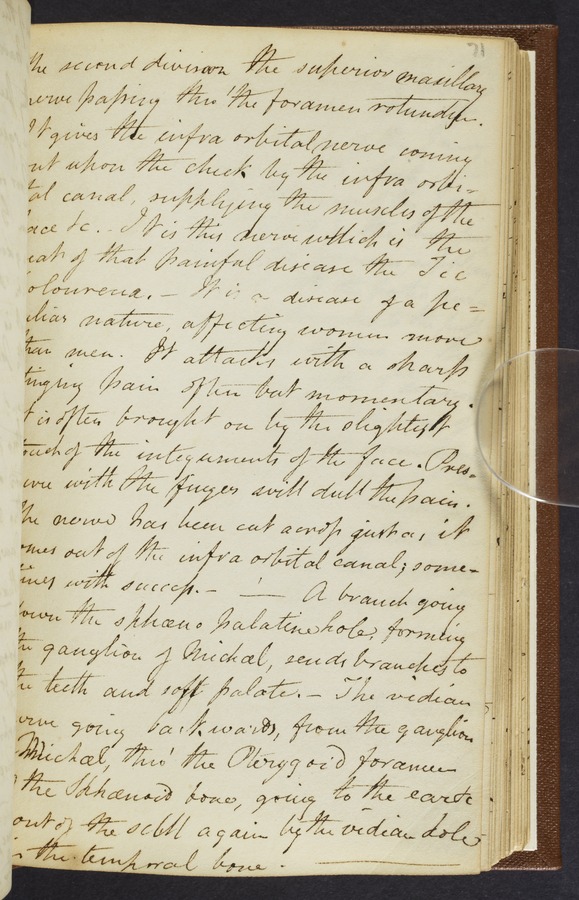 71
the second division the superior maxillary
nerve passing thro' the foramen rotundum.
It gives the infra orbital nerve coming
out upon the cheek by the infra orbi=
tal canal, supplying the muscles of the
face &c. - It is this nerve which is the
seat of that painful disease the Tic
Doloureux. - It is a disease of a pe=
culiar nature, affecting women more
than men. It attacks with a sharp
stinging pain often but momentary.
It is often brought on by the slightest
touch of the integuments of the face. Pres=
sure with the finger will dull the pain.
The nerve has been cut across just as it
comes out of the infra orbital canal; some=
times with success. - A branch going
down the sphæno palatine hole, forming
the ganglion of Michæl, sends branches to
the teeth and soft palate. - The vidian
nerve going backwards, from the ganglion
Michæl, thro' the Pterygoid foramen
the Sphænoid bone, going to the
out of the scull again by the vidian hole
in the temporal bone.